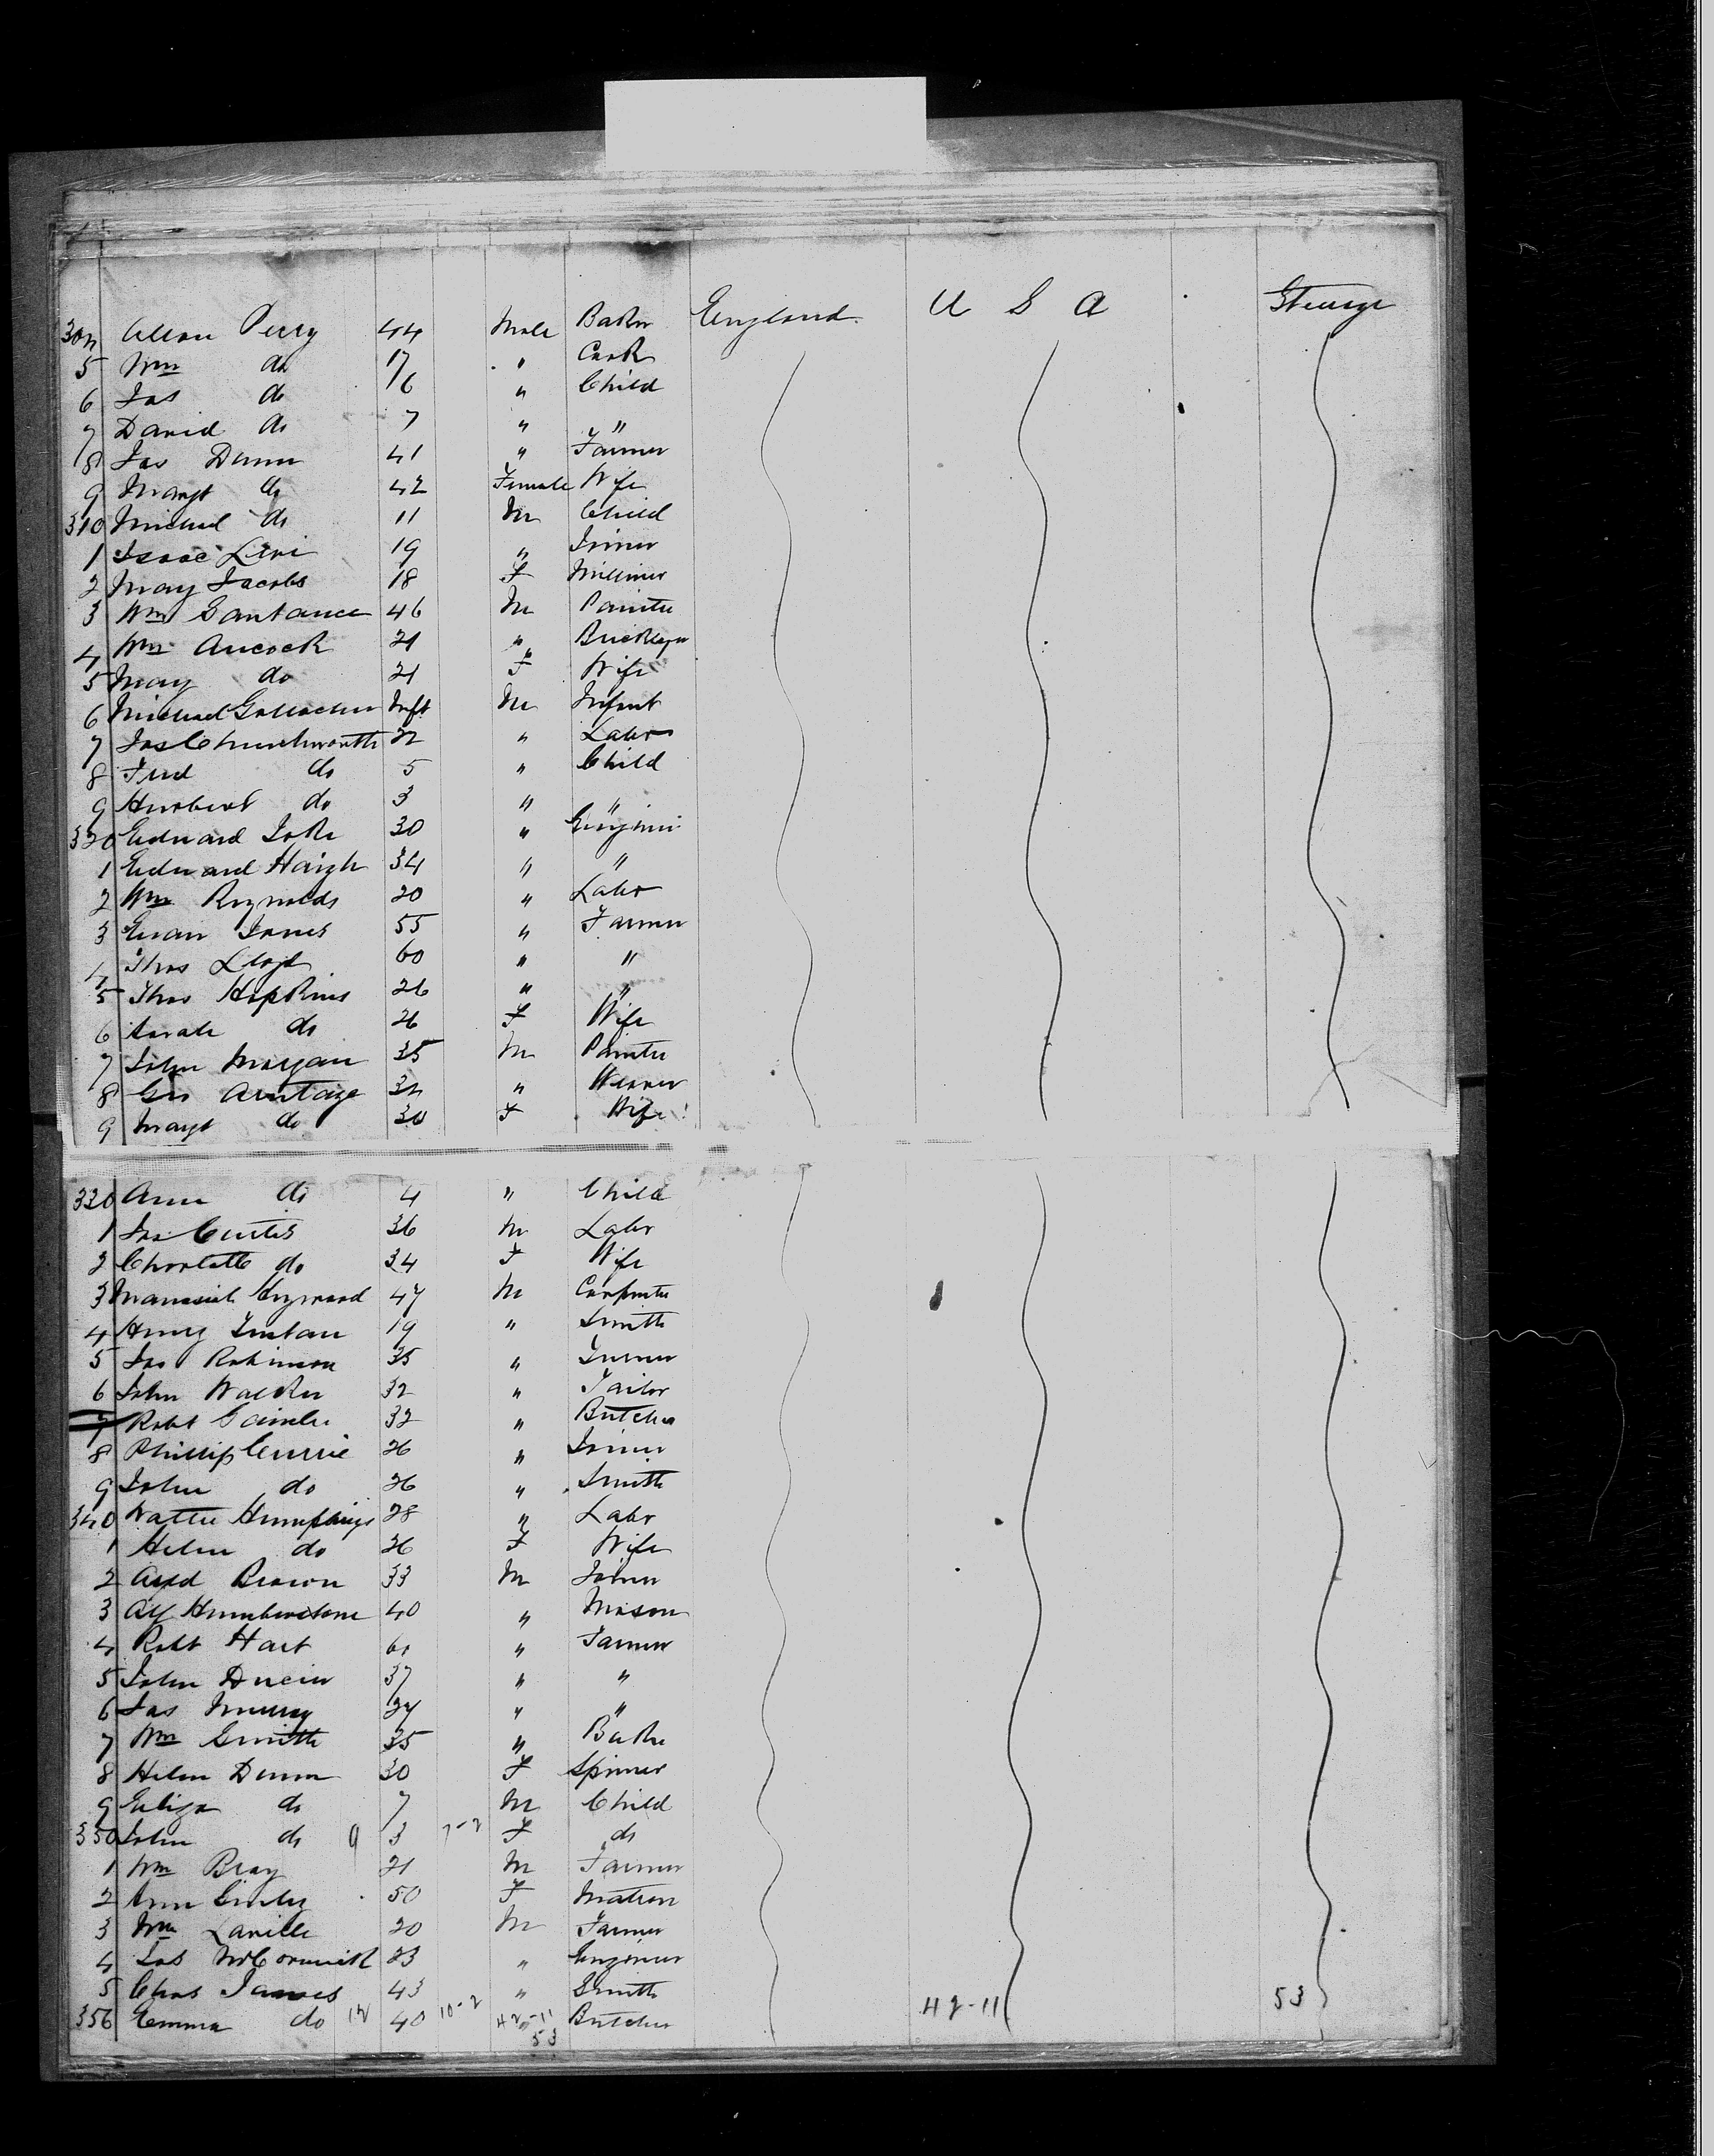 304 Allan Perry 44 Male Baker England U S A Steerage
5 Wm do 17 " Cook
6 Jas do 16 " Child
7 David do 7 " "
8 Jas Dunn 41 " Farmer
9 Margt do 42 Female Wife
310 Michael do 11 M Child
1 Isaac Levi 19 " Joiner
2 May Jacobs 18 F Milliner
3 Wm 46 M Painter
4 Wm 21 "
5 May do 21 F Wife
6 Michael Gallacher Inft M Infant
7 Jas 22 " Labr
8 Fred do 5 " Child
9 Herbert do 3 " "
320 Edward 30 "
1 Edward Haigh 34 " "
2 Wm Reynolds 20 " Labr
3 Evan Jones 55 " Farmer
4 Thos Lloyd 60 " "
5 Thos Hopkins 26 " "
6 Sarah do 26 F Wife
7 John Morgan 35 M Painter
8 Geo Armitage 32 " Weaver
9 Margt do 30 F Wife
330 Ann do 4 " Child
1 Jas Curtis 36 M Labr
2 Charlotte do 34 F Wife
3 47 M Carpenter
4 Henry 19 " Smith
5 Jas Robinson 35 "
6 John Walker 32 " Tailor
7 Robt 32 " Butcher
8 Phillip Currie 26 " Joiner
9 John do 26 " Smith
340 Humphreys 28 " Labr
1 Helen do 26 F Wife
2 Brown 33 M Joiner
3 Alf Humberstone 40 " Mason
4 Robt Hart 61 " Farmer
5 John 37 " "
6 Jas Murray 34 " "
7 Wm Smith 35 " Baker
8 Helen Dunn 30 F Spinner
9 Eliza do 7 M Child
350 John do 9 3 7-2 F do
1 Wm Bray 21 M Farmer
2 Ann 50 F Matron
3 Wm 20 M Farmer
4 Jas McCormick 23 " Engineer
5 Chas James 43 " Smith
356 Emma do 12 40 10-2 42-11 Butcher 42-11 53
53